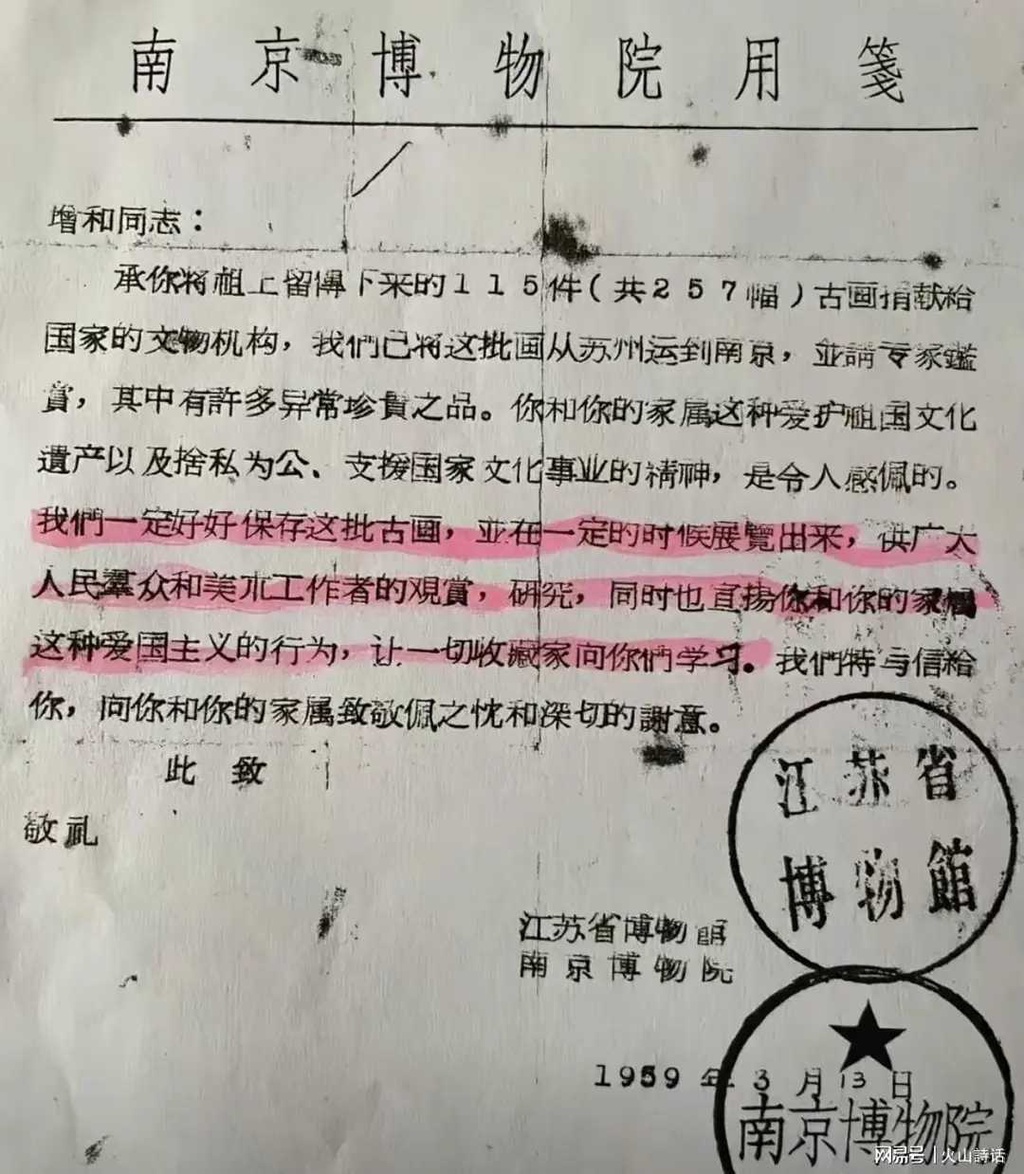 南京博物院用箋
增和同志：
承你将祖上留傳下来的115件(共257幅)古画捐献給
国家的文物机构，我們已将这批画从苏州运到南京，並請专家鑑
賞，其中有許多异常珍貴之品。你和你的家属这种爱护祖国文化
遺产以及捨私为公、支援国家文化事业的精神，是令人感佩的。
我們一定好好保存这批古画，並在一定的时候展覽出来，供广大
人民羣众和美朮工作者的观賞，研究，同时也宣揚你和你的家属
这种爱国主义的行为，让一切收藏家向你們学习。我們特写信給
你，向你和你的家属致敬佩之忱和深切的謝意。
此致
敬礼
江苏省
博物館
江苏省博物館
南京博物院
1959年3月13日
南京博物院
网易号 | 火山詩话